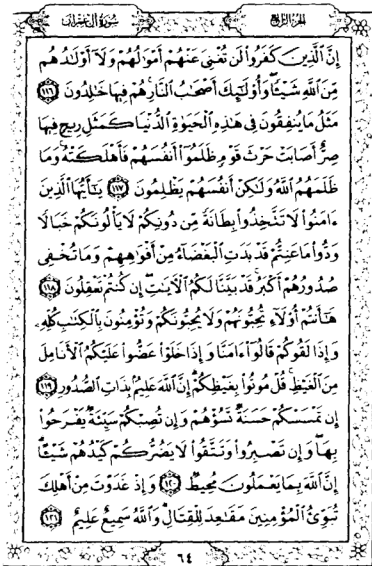 سورة آل عمران
الجزء الرابع
إِنَّ ٱلَّذِينَ كَفَرُوا۟ لَن تُغْنِىَ عَنْهُمْ أَمْوَٰلُهُمْ وَلَآ أَوْلَـٰدُهُم
مِّنَ ٱللَّهِ شَيْـًٔا وَأُو۟لَـٰٓئِكَ أَصْحَـٰبُ ٱلنَّارِ هُمْ فِيهَا خَـٰلِدُونَ ﴿١١٦﴾
مَثَلُ مَا يُنفِقُونَ فِى هَـٰذِهِ ٱلْحَيَوٰةِ ٱلدُّنْيَا كَمَثَلِ رِيحٍ فِيهَا
صِرٌّ أَصَابَتْ حَرْثَ قَوْمٍ ظَلَمُوٓا۟ أَنفُسَهُمْ فَأَهْلَكَتْهُ وَمَا
ظَلَمَهُمُ ٱللَّهُ وَلَـٰكِنْ أَنفُسَهُمْ يَظْلِمُونَ ﴿١١٧﴾ يَـٰٓأَيُّهَا ٱلَّذِينَ
ءَامَنُوا۟ لَا تَتَّخِذُوا۟ بِطَانَةً مِّن دُونِكُمْ لَا يَأْلُونَكُمْ خَبَالًا
وَدُّوا۟ مَا عَنِتُّمْ قَدْ بَدَتِ ٱلْبَغْضَآءُ مِنْ أَفْوَٰهِهِمْ وَمَا تُخْفِى
صُدُورُهُمْ أَكْبَرُ قَدْ بَيَّنَّا لَكُمُ ٱلْـَٔايَـٰتِ إِن كُنتُمْ تَعْقِلُونَ ﴿١١٨﴾
هَـٰٓأَنتُمْ أُو۟لَآءِ تُحِبُّونَهُمْ وَلَا يُحِبُّونَكُمْ وَتُؤْمِنُونَ بِٱلْكِتَـٰبِ كُلِّهِۦ
وَإِذَا لَقُوكُمْ قَالُوٓا۟ ءَامَنَّا وَإِذَا خَلَوْا۟ عَضُّوا۟ عَلَيْكُمُ ٱلْأَنَامِلَ
مِنَ ٱلْغَيْظِ قُلْ مُوتُوا۟ بِغَيْظِكُمْ إِنَّ ٱللَّهَ عَلِيمٌۢ بِذَاتِ ٱلصُّدُورِ ﴿١١٩﴾
إِن تَمْسَسْكُمْ حَسَنَةٌ تَسُؤْهُمْ وَإِن تُصِبْكُمْ سَيِّئَةٌ يَفْرَحُوا۟
بِهَا وَإِن تَصْبِرُوا۟ وَتَتَّقُوا۟ لَا يَضُرُّكُمْ كَيْدُهُمْ شَيْـًٔا
إِنَّ ٱللَّهَ بِمَا يَعْمَلُونَ مُحِيطٌ ﴿١٢٠﴾ وَإِذْ غَدَوْتَ مِنْ أَهْلِكَ
تُبَوِّئُ ٱلْمُؤْمِنِينَ مَقَـٰعِدَ لِلْقِتَالِ وَٱللَّهُ سَمِيعٌ عَلِيمٌ ﴿١٢١﴾
٦٤